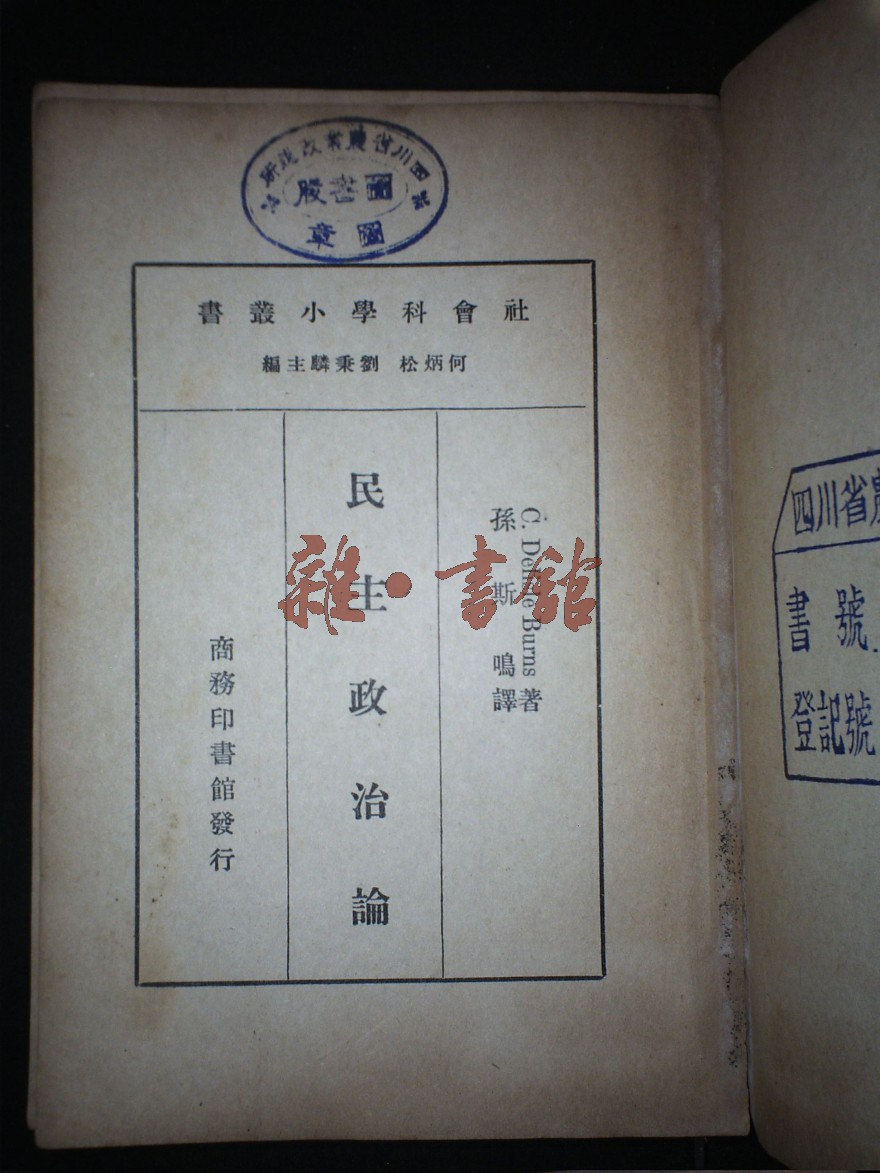 四川省農業改進所
圖書股
圖章
社會科學小叢書
何炳松 劉秉麟主編
C. Delisle Burns 著
孫斯鳴譯
民主政治論
商務印書館發行
雜·書館
四川省農
書號
登記號